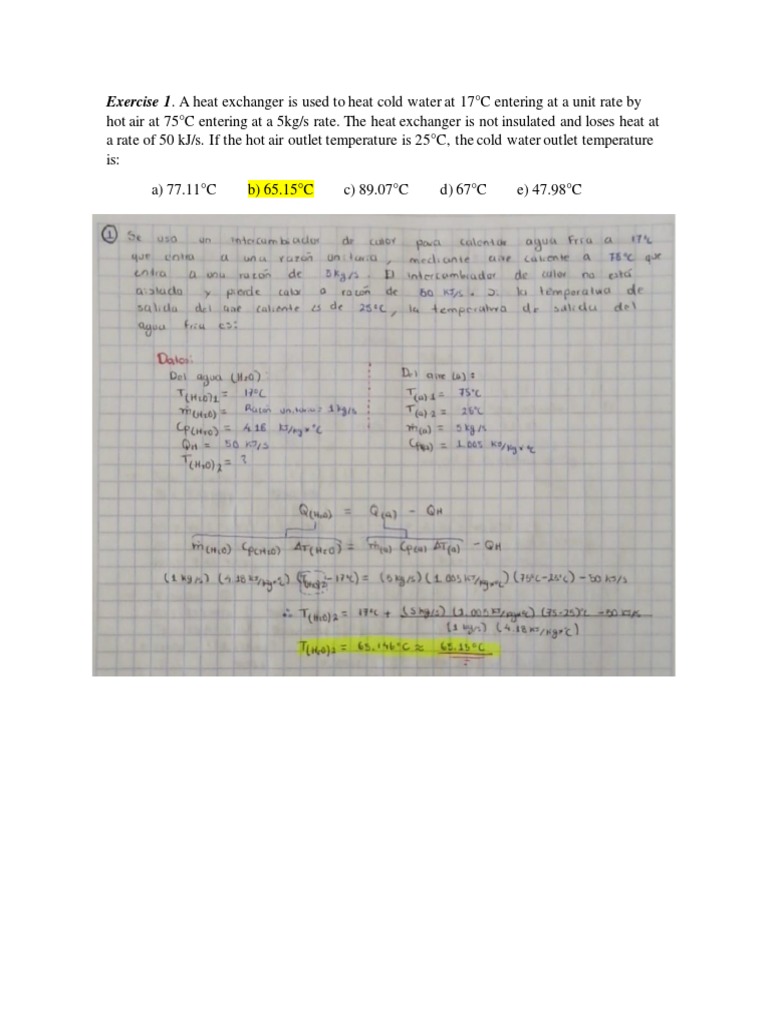 Exercise 1. A heat exchanger is used to heat cold water at 17°C entering at a unit rate by
hot air at 75°C entering at a 5kg/s rate. The heat exchanger is not insulated and loses heat at
a rate of 50 kJ/s. If the hot air outlet temperature is 25°C, the cold water outlet temperature
is:
a) 77.11°C b) 65.15°C c) 89.07°C d) 67°C e) 47.98°C
① Se usa un intercambiador de calor para calentar agua fría a 17°C
que entra a una razón unitaria, mediante aire caliente a 75°C que
entra a una razón de 5kg/s. El intercambiador de calor no está
aislado y pierde calor a razón de 50 KJ/s. Si la temperatura de
salida del aire caliente es de 25°C, la temperatura de salida del
agua fría es:
Datos:
Del agua (H2O):
T(H2O)1 = 17°C
ṁ(H2O) = Razón unitaria: 1kg/s
Cp(H2O) = 4.18 KJ/kg*°C
QH = 50 KJ/s
T(H2O)2 = ?
Del aire (a):
T(a)1 = 75°C
T(a)2 = 25°C
ṁ(a) = 5kg/s
Cp(a) = 1.005 KJ/kg*°C
Q(H2O) = Q(a) - QH
ṁ(H2O) Cp(H2O) ΔT(H2O) = ṁ(a) Cp(a) ΔT(a) - QH
(1 kg/s) (4.18 KJ/kg*°C) (T(H2O)2 - 17°C) = (5kg/s) (1.005 KJ/kg*°C) (75°C-25°C) - 50 KJ/s
∴ T(H2O)2 = 17°C + (5kg/s) (1.005 KJ/kg*°C) (75-25)°C - 50 KJ/s
(1 kg/s) (4.18 KJ/kg*°C)
T(H2O)2 = 65.146°C ≈ 65.15°C